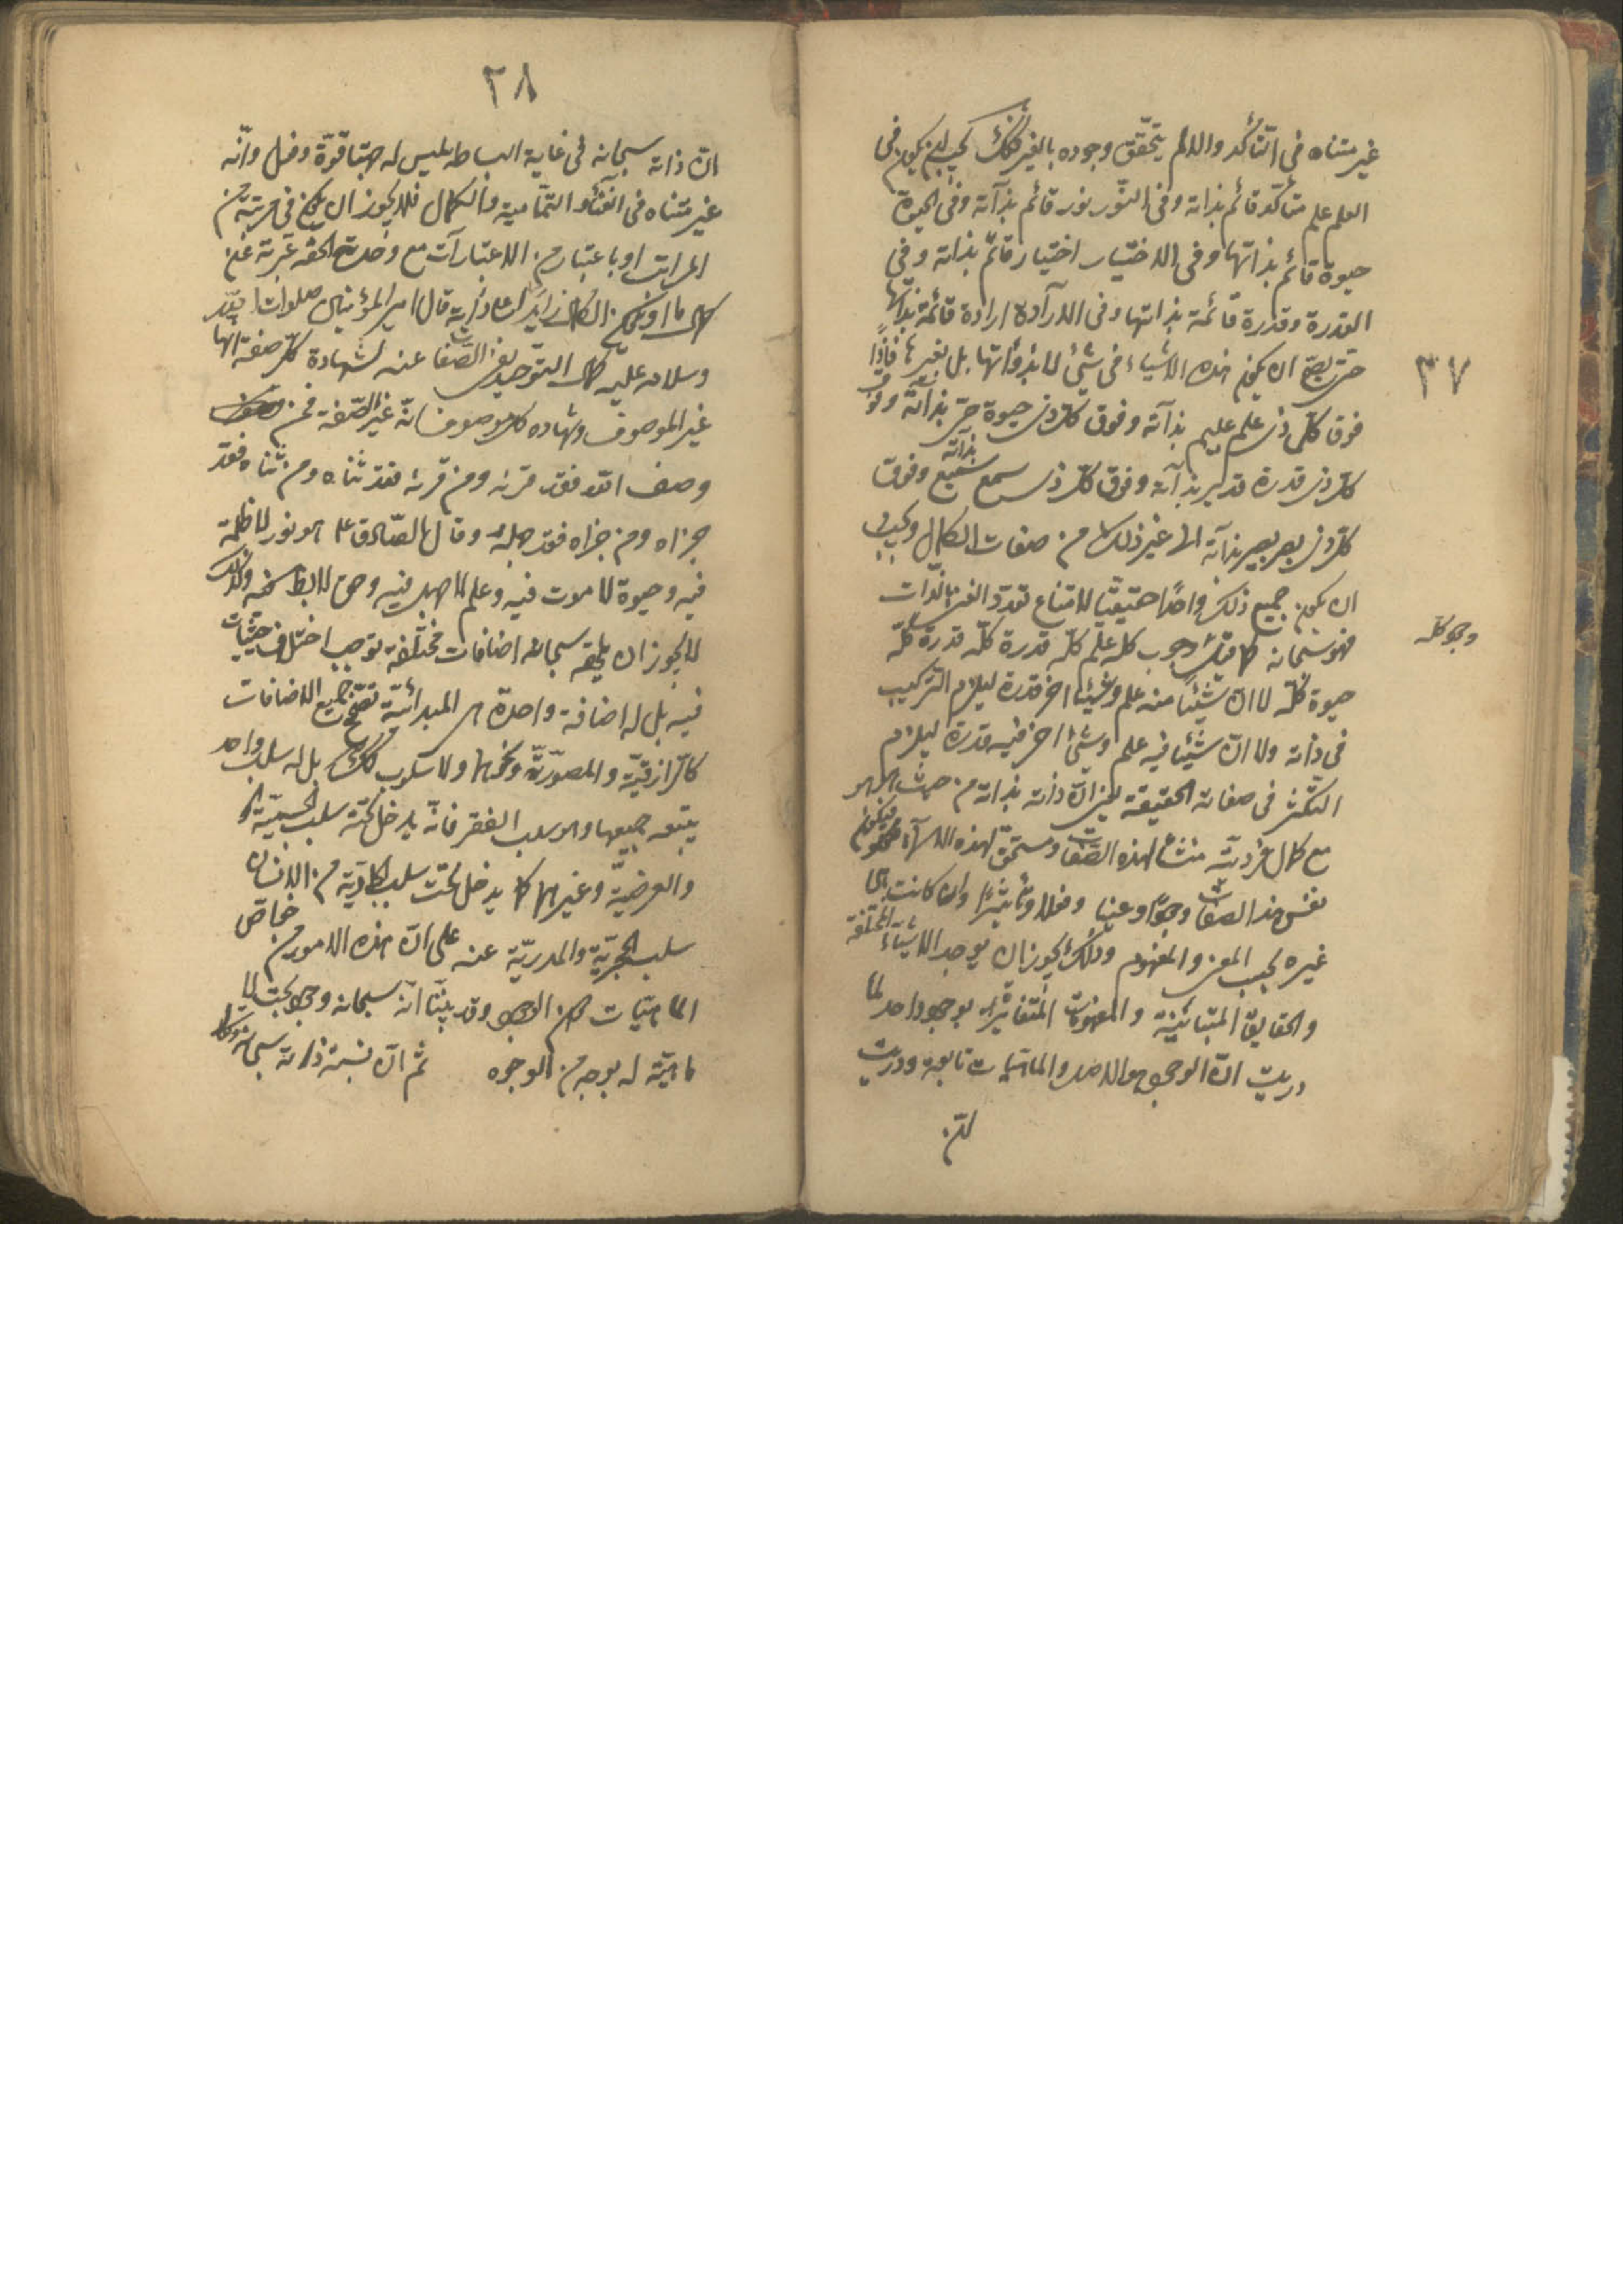 غير متناه في التأكد والا لم يتحقق وجوده بالغير فكذلك يجب ان يكون في
العلم علم متأكد قائم بذاته وفي النور نور قائم بذاته وفي الحيوة
حيوة قائم بذاتها وفي الاختيار اختيار قائم بذاته وفي
القدرة وقدرة قائمة بذاتها وفي الارادة ارادة قائمة بذاتها
حتى يصح ان يكون هذه الاشياء في شيئ لا بذواتها بل بغيرها فاذا
٣٧
فوق كل ذي علم عليم بذاته وفوق كل ذي حيوة حي بذاته وفوق
كل ذي قدرة قدير بذاته وفوق كل ذي سمع سميع بذاته وفوق
كل ذي بصر بصير بذاته الى غير ذلك من صفات الكمال ويجب
ان يكون جميع ذلك واحدا حقيقيا لامتناع تعدد الغني بالذات
فهو سبحانه كما قيل وجوب كله علم كله قدرة كله قدرة كله
وجود كله
حيوة كله لا ان شيئا منه علم وشيئا اخر قدرة ليلزم التركيب
في ذاته ولا ان شيئا فيه علم وشيئا اخر فيه قدرة ليلزم
التكثر في صفاته الحقيقة يعني ان ذاته بذاته من حيث هو هو
مع كمال فرديته منشأ لهذه الصفات ومستحق لهذه الاسماء فيكون هو
نفس هذا الصفات وجودا وعينا وفعلا وتأثيرا وان كانت هي
غيره بحسب المعنى والمفهوم وذلك يجوز ان يوجد الاشياء المختلفة
والحقايق المتباينة والمفهومات المتغايرة بوجود واحد لما
دريت ان الوجود هو الاصل والماهيات تابعة ودريت
ان
٣٨
ان ذاته سبحانه في غاية البساطه ليس له جهتا قوة وفعل وانه
غير متناه في الغناء والتمامية والكمال فلا يجوز ان يكون في مرتبة من
المراتب او باعتبار من الاعتبارات مع وحدته الحقه عرية عن
كمال ما او يكون الكمال زايدا على ذاته قال امير المؤمنين صلوات الله
وسلامه عليه كمال التوحيد نفي الصفات عنه لشهادة كل صفة انها
غير الموصوف وشهاده كل موصوف انه غير الصفة فمن
وصف الله فقد قرنه ومن قرنه فقد ثناه ومن ثناه فقد
جزاه ومن جزاه فقد جهله وقال الصادق ع هو نور لا ظلمة
فيه وحيوة لا موت فيه وعلم لا جهل فيه وحق لا باطل فيه وكذلك
لا يجوز ان يلحقه سبحانه اضافات مختلفة توجب اختلاف حيثيات
فيه بل له اضافة واحدة هي المبدائية تصحح جميع الاضافات
كالرازقية والمصورية ونحوها ولا سلوب كذلك بل له سلب واحد
يتبعه جميعها وهو سلب الفقر فانه يدخل تحته سلب الجسمية
والعرضية وغيرهما كما يدخل تحت سلب الجمادية من الانسان
سلب الحجرية والمدرية عنه على ان هذه الامور من خواص
الماهيات دون الوجود وقد بينا انه سبحانه وجود بحت لا
ماهية له بوجه من الوجوه ثم ان نسبة ذاته سبحانه